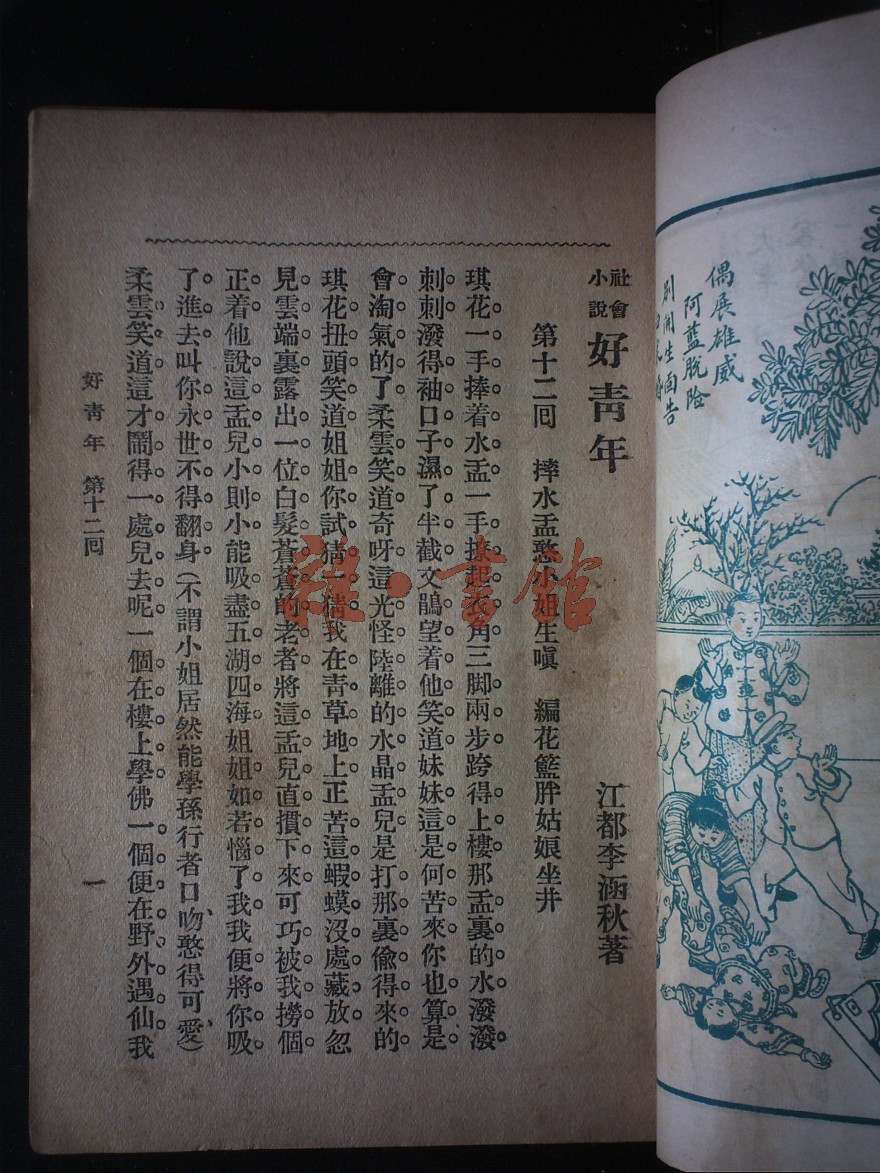 偶展雄威
阿藍脫險
別開生面告
社會
小說
好青年
江都李涵秋著
第十二回　摔水盂憨小姐生嗔　編花籃胖姑娘坐井
琪花一手捧着水盂一手撩起衣角三脚兩步跨得上樓那盂裏的水潑潑
刺刺潑得袖口子濕了半截文鵑望着他笑道妹妹這是何苦來你也算是
會淘氣的了柔雲笑道奇呀這光怪陸離的水晶盂兒是打那裏偸得來的
琪花扭頭笑道姐姐你試猜一猜我在青草地上正苦這蝦蟆沒處藏放忽
見雲端裏露出一位白髮蒼蒼的老者將這盂兒直摜下來可巧被我撈個
正着他說這盂兒小則小能吸盡五湖四海姐姐如若惱了我我便將你吸
了進去叫你永世不得翻身（不謂小姐居然能學孫行者口吻憨得可愛）
柔雲笑道這才鬧得一處兒去呢一個在樓上學佛一個便在野外遇仙我
好青年　第十二回
一
雜·書館